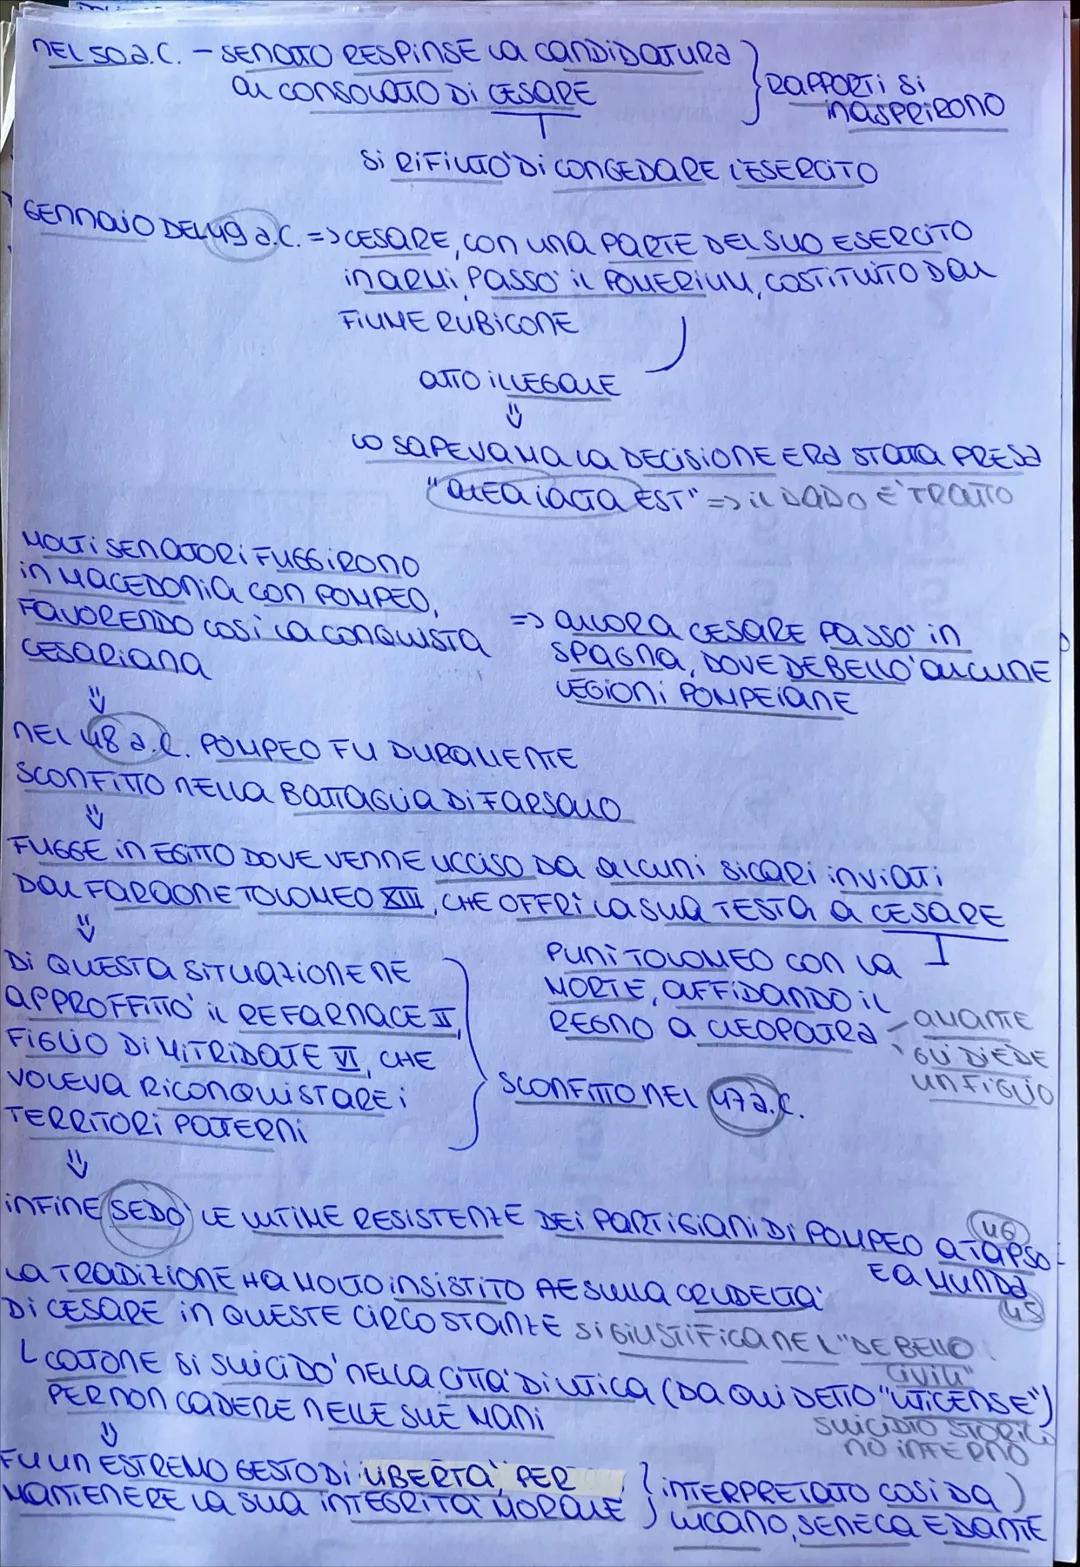 NEL 50 a.C. - SENATO RESPINSE LA CANDIDATURA
AL CONSOLATO DI CESARE
RAPPORTI SI
INASPRIRONO
SI RIFIUTO' DI CONGEDARE L'ESERCITO
GENNAIO DEL 49 a.C. => CESARE, CON UNA PARTE DEL SUO ESERCITO
IN ARMI, PASSO' IL POMERIUM, COSTITUITO DAL
FIUME RUBICONE
ATTO ILLEGALE
LO SAPEVA MA LA DECISIONE ERA STATA PRESA
"ALEA IACTA EST" => IL DADO E' TRATTO
MOLTI SENATORI FUGGIRONO
IN MACEDONIA CON POMPEO,
FAVORENDO COSI' LA CONQUISTA
CESARIANA
=> ALLORA CESARE PASSO' IN
SPAGNA, DOVE DEBELLO' ALCUNE
LEGIONI POMPEIANE
NEL 48 a.C. POMPEO FU DURAMENTE
SCONFITTO NELLA BATTAGLIA DI FARSALO
FUGGE IN EGITTO DOVE VENNE UCCISO DA ALCUNI SICARI INVIATI
DAL FARAONE TOLOMEO XIII, CHE OFFRI' LA SUA TESTA A CESARE
PUNI' TOLOMEO CON LA
MORTE, AFFIDANDO IL
REGNO A CLEOPATRA
AMANTE
GLI DIEDE
UN FIGLIO
DI QUESTA SITUAZIONE NE
APPROFFITTO' IL RE FARNACE II,
FIGLIO DI MITRIDATE VI, CHE
VOLEVA RICONQUISTARE I
TERRITORI PATERNI
SCONFITTO NEL 47 a.C.
INFINE SEDO' LE ULTIME RESISTENZE DEI PARTIGIANI DI POMPEO A TAPSO
46
E A MUNDA
45
LA TRADIZIONE HA MOLTO INSISTITO SULLA CRUDELTA'
DI CESARE IN QUESTE CIRCOSTANZE SI GIUSTIFICA NEL "DE BELLO
CIVILI"
CATONE SI SUICIDO' NELLA CITTA' DI UTICA (DA QUI DETTO "UTICENSE")
PER NON CADERE NELLE SUE MANI
SUICIDIO STORICO
NO INFERNO
FU UN ESTREMO GESTO DI LIBERTA', PER
MANTENERE LA SUA INTEGRITA' MORALE
INTERPRETATO COSI' DA
LUCANO, SENECA E DANTE